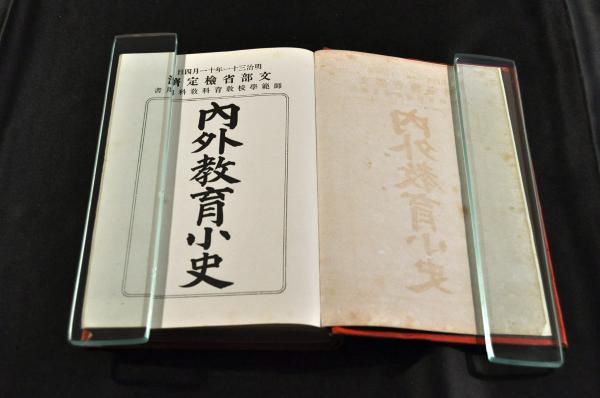 明治三十一年十一月四日
文部省檢定濟
師範學校敎育科敎科用書
內外敎育小史